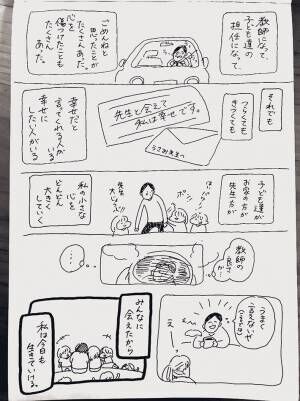 教師になって、
子ども達の
担任になって、
ごめんねと
思ったことが
たくさんあった。
心を
傷つけたことも
たくさん
あった。
それでも
つらくても
きつくても
先生と会えて
私は幸せです。
うさみ先生へ
幸せだと
言ってくれる人がいる
幸せに
したい人がいる
子ども達が
お家の方が
先生方が
先生
大じょうぶ
私の小さな
心を
どんどん
大きく
していく
教師の
良さ
か…
…
うまく
言えないや
え
みんなに
会えたから
私は今日も
生きていける。